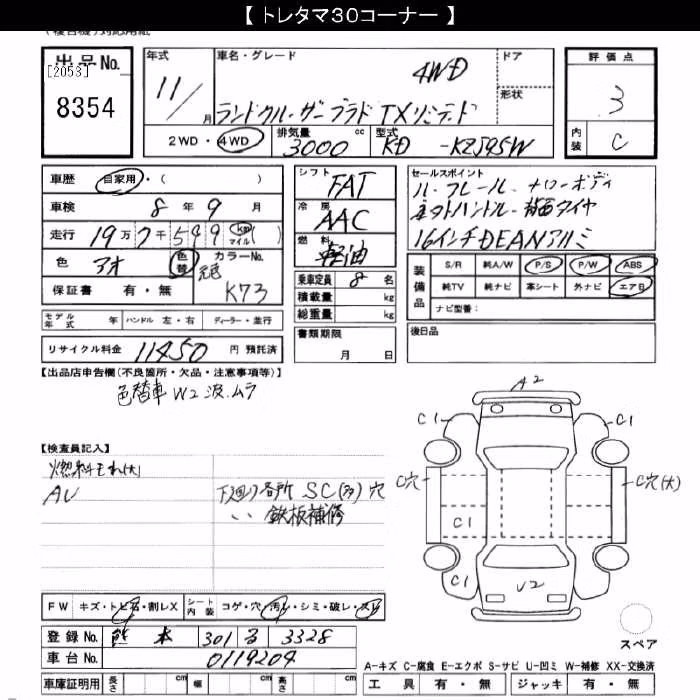 【 トレタマ30コーナー 】
(複合機)対応用紙
出品No.
[2053]
8354
年式
11/
月
車名・グレード
4WD
ランドクルーザープラド TXリミテッド
ドア
形状
評価点
3
内装
C
2WD・4WD
排気量
3000
cc
型式
KD
-KZJ95W
車歴
自家用・( )
車検
8年9月
走行
19万7千599 km マイル ( )
色
アオ
色替
元色
カラーNo.
K73
保証書 有・無
シフト
FAT
冷房
AAC
燃料
軽油
乗車定員
8名
積載量
kg
総重量
kg
セールスポイント
ルーフレール・ナローボディ
本木ハンドル・背面タイヤ
16インチDEANアルミ
装備品
S/R
純A/W
P/S
P/W
ABS
純TV
純ナビ
革シート
外ナビ
エアB
ナビ型番:
モデル年式
年
ハンドル 左・右
ディーラー・並行
書類期限
月 日
後日品
リサイクル料金
11450
円 預託済
【出品店申告欄(不良箇所・欠品・注意事項等)】
色替車 W2 波.ムラ
【検査員記入】
燃料モレ(大)
AU
下廻り各所 SC(多) 穴
〃 鉄板補修
A2
C1
C1
C穴
C穴(大)
C1
C1
C1
U2
スペア
FW
キズ・トビ石・割レX
シート内装
コゲ・穴・汚レ・シミ・破レ・スレ
登録No.
熊本
301
る
3328
車台No.
0119204
A-キズ C-腐食 E-エクボ S-サビ U-凹ミ W-補修 XX-交換済
車庫証明用
長さ
cm
幅
cm
高さ
cm
工具
有・無
ジャッキ
有・無